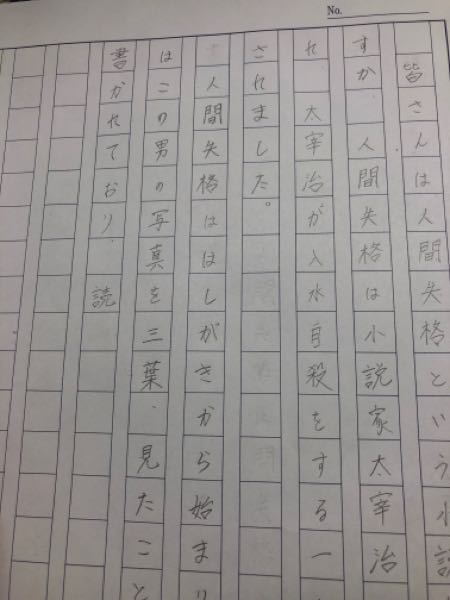 No.
皆さんは人間失格という小説
すか、人間失格は小説家太宰治
れ、太宰治が入水自殺をする一
されました。
人間失格ははしがきから始まり
はこの男の写真を三葉、見たこと
書かれており、読